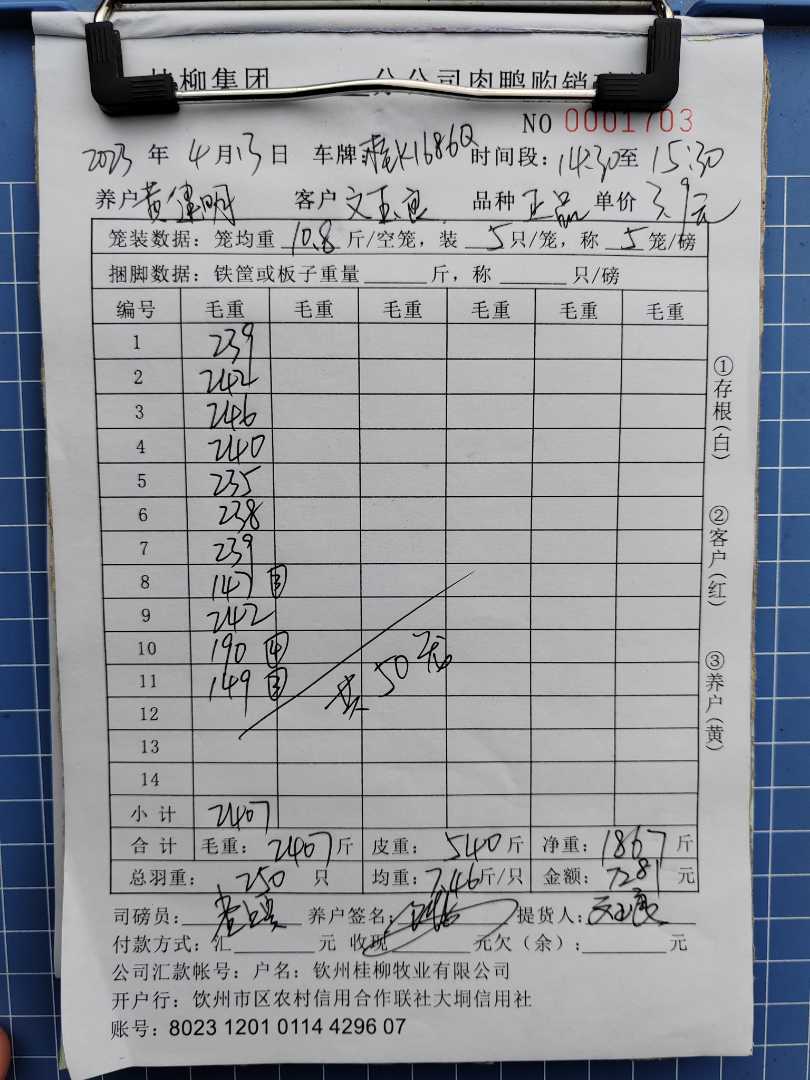 柳集团 分公司肉鸭购销
NO 0001703
2023 年 4 月 13 日 车牌 桂K1686Q 时间段: 14:30 至 15:30
养户 黄建明 客户 文玉良 品种 正品 单价 3.9元
笼装数据: 笼均重 10.8 斤/空笼, 装 5 只/笼, 称 5 笼/磅
捆脚数据: 铁筐或板子重量 斤, 称 只/磅
编号 毛重 毛重 毛重 毛重 毛重 毛重
1 239
2 242
3 246
4 240
5 235
6 238
7 239
8 147 ③
9 242
10 190 ④
11 149 ③
共50笼
12
13
14
小计 2407
合计 毛重: 2407 斤 皮重: 540 斤 净重: 1867 斤
总羽重: 250 只 均重: 7.46 斤/只 金额: 7281 元
司磅员: 养户签名: 提货人:
付款方式: 汇 元 收现 元欠(余): 元
公司汇款帐号: 户名: 钦州桂柳牧业有限公司
开户行: 饮州市区农村信用合作联社大垌信用社
账号: 8023 1201 0114 4296 07
①存根(白)
②客户(红)
③养户(黄)